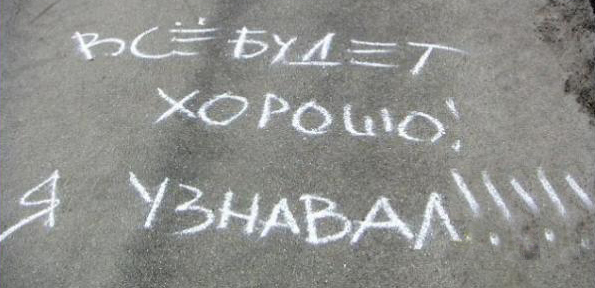 ВСЁ БУДЕТ
ХОРОШО!
Я УЗНАВАЛ!!!!!